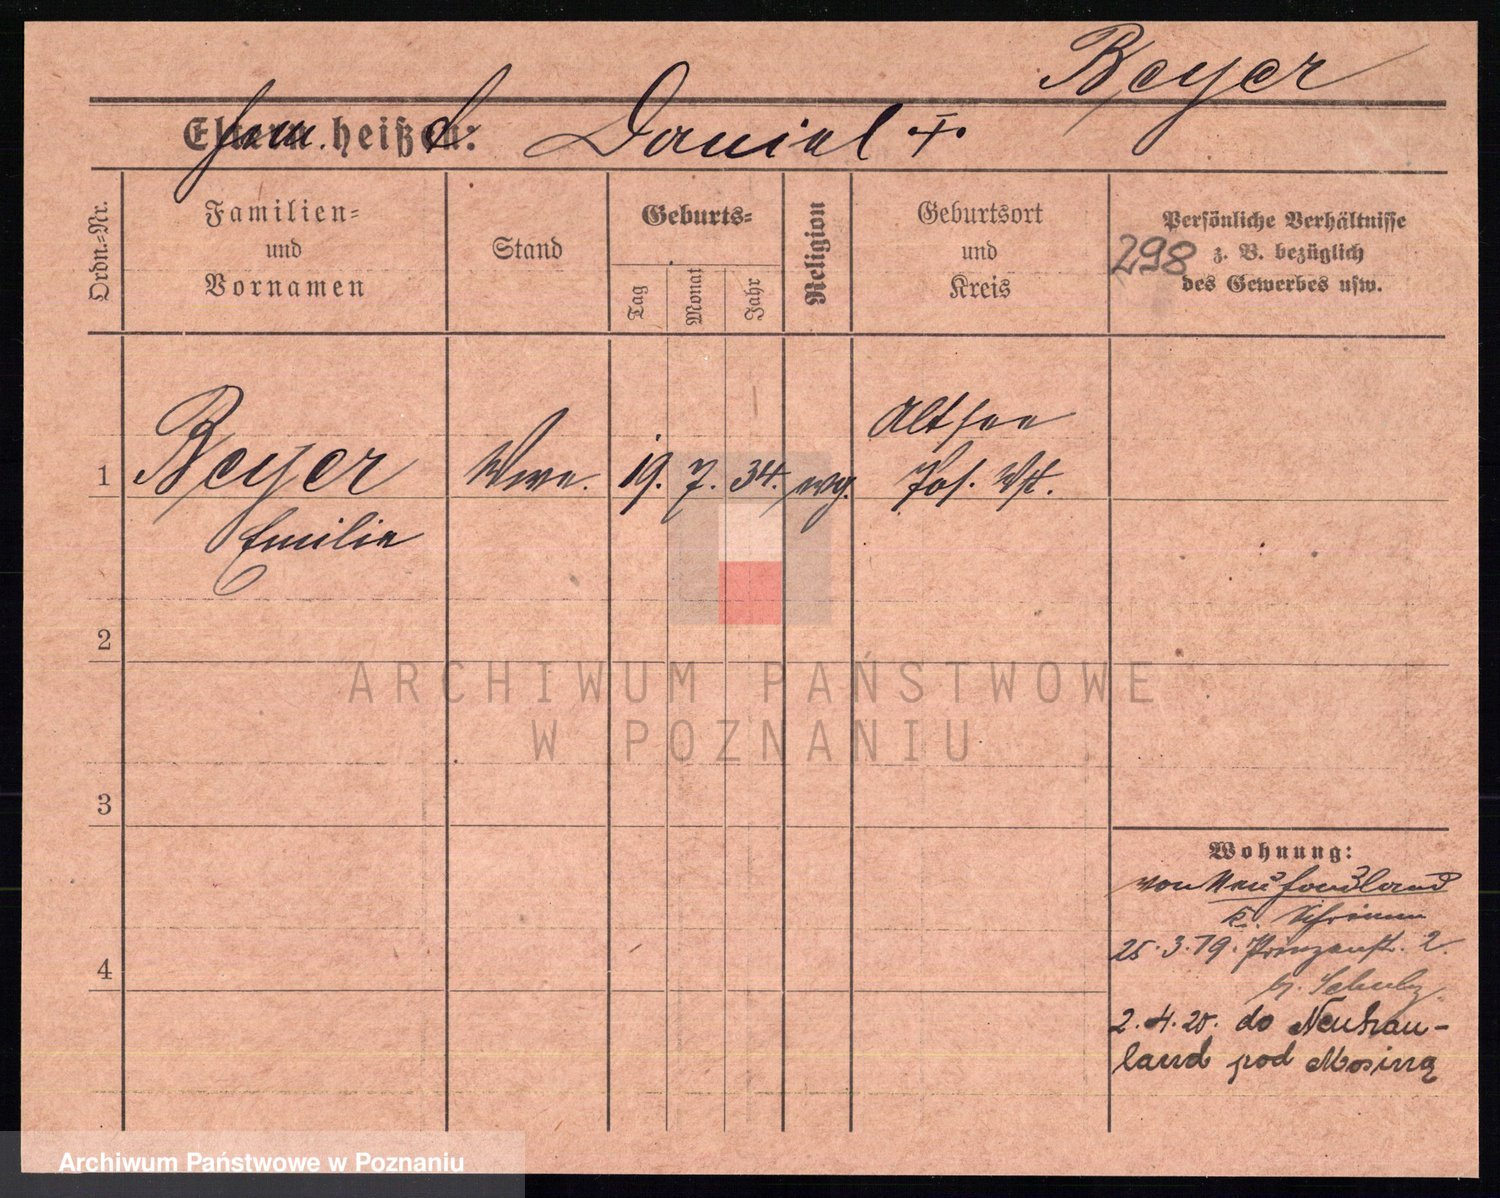 Beyer
Eltern heißen: Daniel +.
Ordn.-Nr.
Familien-
und
Vornamen
Stand
Geburts-
Tag
Monat
Jahr
Religion
Geburtsort
und
Kreis
Persönliche Verhältnisse
298 z. B. bezüglich
des Gewerbes usw.
Altsee
1 Beyer Wwe. 19. 7. 34. evg. Pos. Wst.
Emilie
2
ARCHIWUM PAŃSTWOWE
W POZNANIU
3
Wohnung:
von
Schrimm
4
25.3.19. Prinzenstr. 2.
b. Schulz
2.4.20. do Neuhau-
land pod Mosiną
Archiwum Państwowe w Poznaniu